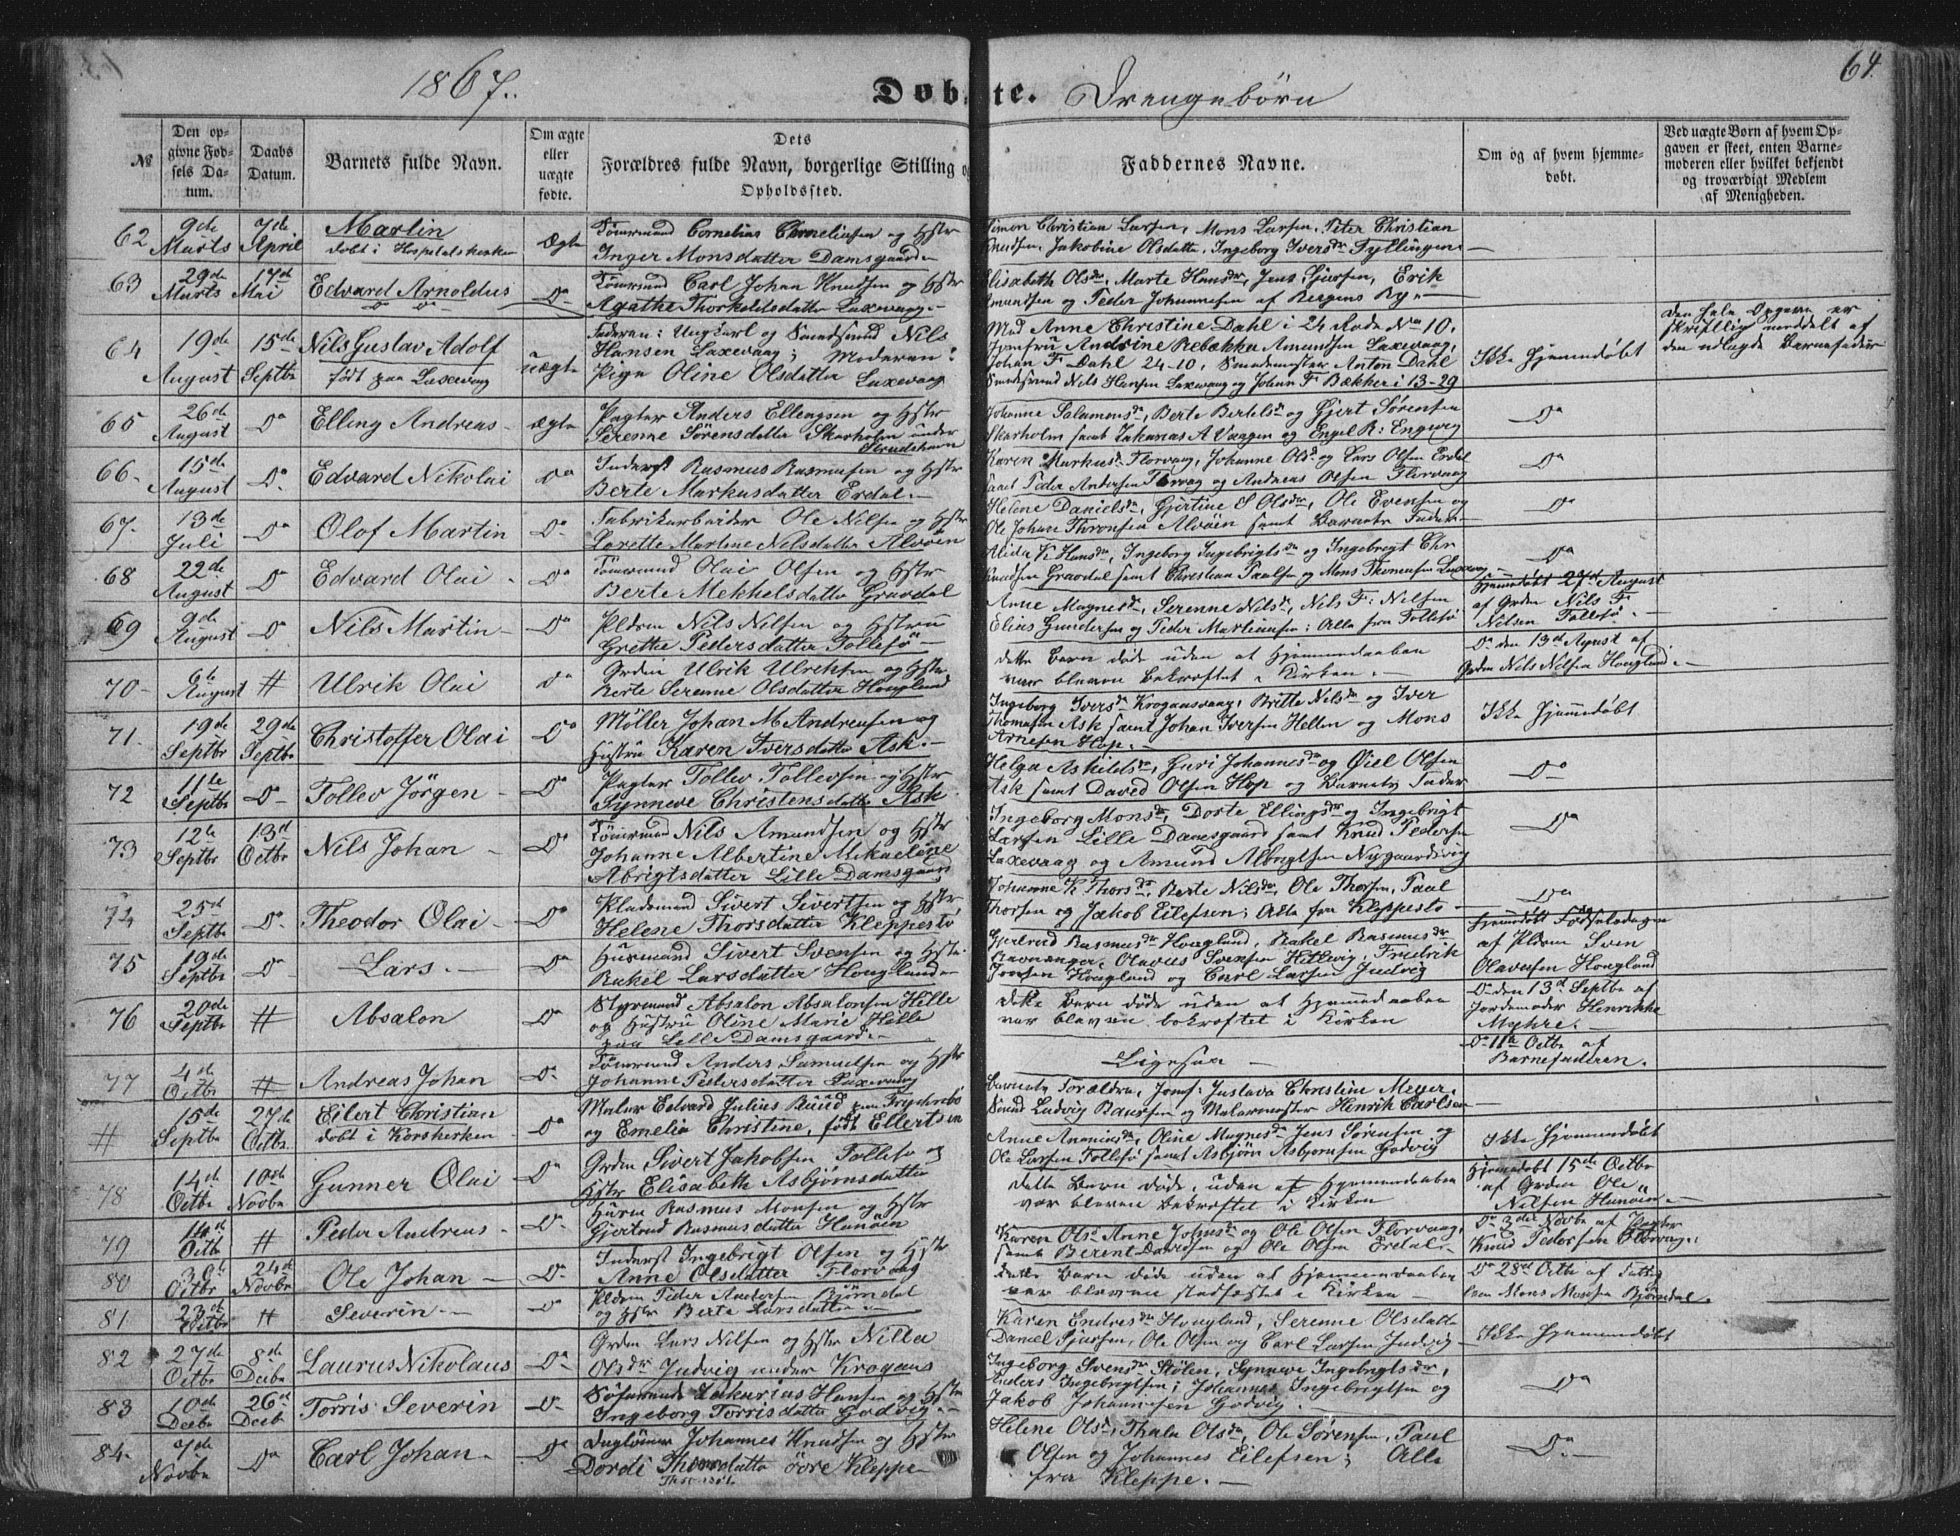 1867.
Döbte. Drengebörn
64.
№
Den opgivne Fødsels Datum.
Daabs Datum.
Barnets fulde Navn.
Om ægte eller uægte fødte.
Dets Forældres fulde Navn, borgerlige Stilling og Opholdssted.
Faddernes Navne.
Om og af hvem hjemmedøbt.
Ved uægte Børn af hvem Opgaven er skeet, enten Barnemoderen eller hvilket bekjendt og troværdigt Medlem af Menigheden.
62 9de Marts 7de April Martin døbt i Hospitalskirken Ægte
Tömrmand Cornelius Corneliusen og Hstr
Inger Monsdatter Damsgaard
Simon Christian Larsen, Mons Larsen, Peter Christian
Knudsen, Jakobine Olsdatte, Ingeborg Iversdr Fyllingen
63 29de Marts 17de Mai Edvard Arnoldus Do
Tömrmand Carl Johan Knudsen og Hstr
Agathe Thorkeldsdatter Laxevaag
Elisabeth Olsdr, Marte Hansdr, Jens Sjursen, Erik
Amundsen og Peder Johannesen af Bergens By
64 19de August 15de Septbr Nils Gustav Adolf født paa Laxevaag uægte
Faderen: Ungkarl og Smedsvend Nils
Hansen Laxevaag; Moderen:
Pige Oline Olsdatter Laxevaag
Mad Anne Christine Dahl i 24 Rode No 10,
Jomfru Andrine Rebækka Amundsen Laxevaag,
Johan F. Dahl 24-10, Smedemester Anton Dahl
Smedsvend Nils Hansen Laxevaag og Johan F. Bækker i 13-29
Ikke Hjemmedøbt
Den hele Opgave er
skriftlig meddelt af
den udlagte Barnefader
65 26de August Do Elling Andreas Ægte
Pagter Anders Ellingsen og Hstr
Serenne Sörensdatter Skarholm under
Strudshavn
Johanne Salamonsdr, Berte Bertelsdr og Gjert Sørensen
Skarholm samt Zakarias A Vaagen og Engel R: Engevig
Do
66 15de August Do Edvard Nikolai Do
Inderst Rasmus Rasmusen og Hstr
Berte Markusdatter Erdal
Karen Markusdr Florvaag, Johanne Olsdr og Lars Olsen Erdal
samt Peder Andersen Florvaag og Andreas Olsen Florvaag
Do
67 13de Juli Do Olaf Martin Do
Fabrikarbeider Ole Nilsen og Hstr
Lorette Martine Nilsdatter Alvøen
Helene Danielsdr, Gjertine S Olsdr, Ole Evensen og
Ole Johan Thronsen Alvøen samt Barnets Fader
Do
68 22de August Do Edvard Olai Do
Tömrmand Olai Olsen og Hstr
Berte Mekkelsdatter Gravdal
Alida K Hansdr, Ingeborg Ingebrigtsdr og Ingebregt Chr
Knudsen Gravdal samt Christian Paulsen og Mons Thomesen Laxevaag
Do
69 9de August Do Nils Martin Do
Pldrm Nils Nilsen og Hstru
Grethe Pedersdatter Follesö
Anne Magnesdr, Serenne Nilsdr, Nils F: Nilsen
Elias Gundersen og Peder Martiensen: Alla fra Follesö
Hjemmedøbt 27de August
af Grdm Nils F.
Nilsen Follesö
70 6te August # Ulrik Olai Do
Grdm Ulrik Ulriksen og Hstr
Berte Serenne Olsdatter Hougland
dette Barn døde uden at Hjemmedaaben
var bleven bekræftet i Kirken.
Do den 13de August af
Grdm Nils Nilsen Hougland
71 19de Septbr 29de Septbr Christoffer Olai Do
Møller Johan M Andreasen og
Hustru Karen Iversdatter Ask
Ingeborg Iversdr Krogaasvaag, Britte Nilsdr og Iver
Thomasen Ask samt Johan Iversen Hellen og Mons
Arnesen Hop
Ikke Hjemmedøbt
72 11te Septbr Do Tollev Jörgen Do
Pagter Tollev Tollevsen og Hstr
Synneve Christensdatter Ask
Helga Askildsdr, Guri Johannesdr og Öiel Olsen
Ask samt David Olsen Hop og Barnets Fader
Do
73 12te Septbr 13de Octbr Nils Johan Do
Tömrmand Nils Amundsen og Hstr
Johanne Albertine Mikaeline
Abrigtsdatter Lille Damsgaard
Ingeborg Monsdr, Dorte Ellingsdr og Ingebrigt
Larsen Lille Damsgaard samt Knud Pedersen
Laxevaag og Amund Albrigtsen Nygaardsvig
Do
74 25de Septbr Do Theodor Olai Do
Pladsmand Sivert Sivertsen og Hstr
Helene Thorsdatter Kleppestö
Johanne K Thorsdr, Berte Nilsdr, Ole Thorsen, Paul
Thorsen og Jakob Eilefsen; Alla fra Kleppestö
Do
75 19de Septbr Do Lars Do
Husmand Sivert Svensen og Hstr
Rakel Larsdatter Hougland
Gjertrud Rasmusdr Hougland, Rakel Rasmusdr
Ravnanger, Olavus Svensen Hillevig, Fredrik
Joensen Hougland og Carl Larsen Judvig
Hjemmdøbt Fødselsdagen
af Pldrm Sven
Olavusen Hougland
76 20de Septbr # Absalon Do
Styrmand Absalon Absalonsen Hille
og Hustru Oline Marie Hille
paa Lille Damsgaard
dette Barn døde uden at Hjemmedaaben
var bleven bekræftet i Kirken
Do den 13de Septbr af
Jordemoder Henrikke
Myhre.
77 4de Octbr # Andreas Johan Do
Tömrmand Anders Samuelsen og Hstr
Johanne Pedersdatter Laxevaag
Ligesaa
Do 11te Octbr af
Barnefaderen.
# 15de Septbr 27de Octbr Eilert Christian døbt i Korskirken Do
Maler Edvard Julius Buüd paa Frydenbö
og Emelia Christine, født Ellertsen
Barnets Forældre, Jomf: Gustava Christine Meyer,
Svend Ludvig Baursen og Malermester Henrik Carlsen
78 14de Octbr 10de Novbr Gunner Olai Do
Grdm Sivert Jakobsen Follesö og
Hstr Elisabeth Asbjörnsdatter
Anne Ananiasdr, Oline Magnesdr, Jens Sörensen og
Ole Larsen Follesö samt Asbjörn Asbjornsen Godvig
Ikke Hjemmedøbt
79 14de Octbr # Peder Andreas Do
Husm Rasmus Monsen og Hstr
Gjertrud Rasmusdatter Hanöen
dette Barn døde, uden at Hjemmedaaben
var bleven bekræftet i Kirken
Hjemmdøbt 15de Octbr
af Grdm Ole
Nilsen Hanöen
80 30te Octbr 24de Novbr Ole Johan Do
Inderst Ingebrigt Olsen og Hstr
Anne Olsdatter Florvaag
Karen Olsdr Anne Johnsdr og Ole Olsen Florvaag,
samt Berent Davidsen og Ole Olsen Erdal
Do 3die Novbr af Pagter
Knud Pedersen Florvaag
81 23de Octbr # Severin Do
Pldrm Peder Andersen Björndal
og Hstr Berte Larsdatter
dette Barn døde uden at Hjemmedaaben
var bleven stadfæstet i Kirken
Do 28de Octbr af Fattig
lem Mons Monsen Björndal
82 27de Octbr 8de Decbr Laurus Nikolaus Do
Grdm Lars Nilsen og Hstr Nilla
Olsdr Judvig under Krogaas
Karen Endresdr Hougland, Serenne Olsdatter
Daniel Sjursen, Ole Olsen og Carl Larsen Judvig
Ikke Hjemmedøbt
83 10de Decbr 26de Decbr Torris Severin Do
Sömand Zakarias Hansen og Hstr
Ingeborg Torrisdatter Godvig
Ingeborg Svensdr Stölen, Synneve Ingebrigtsdr,
Anders Ingebrigtsen, Johannes Ingebrigtsen og
Jakob Johannesen Godvig
Do
84 7de Novbr Do Carl Johan Do
Daglönner Johannes Knudsen og Hstr
Dordi Thomsdatter övre Kleppe
Helene Olsdr, Thale Olsdr, Ole Sörensen, Paul
Olsen og Johannes Eilefsen; Alle
fra Kleppe.
Do